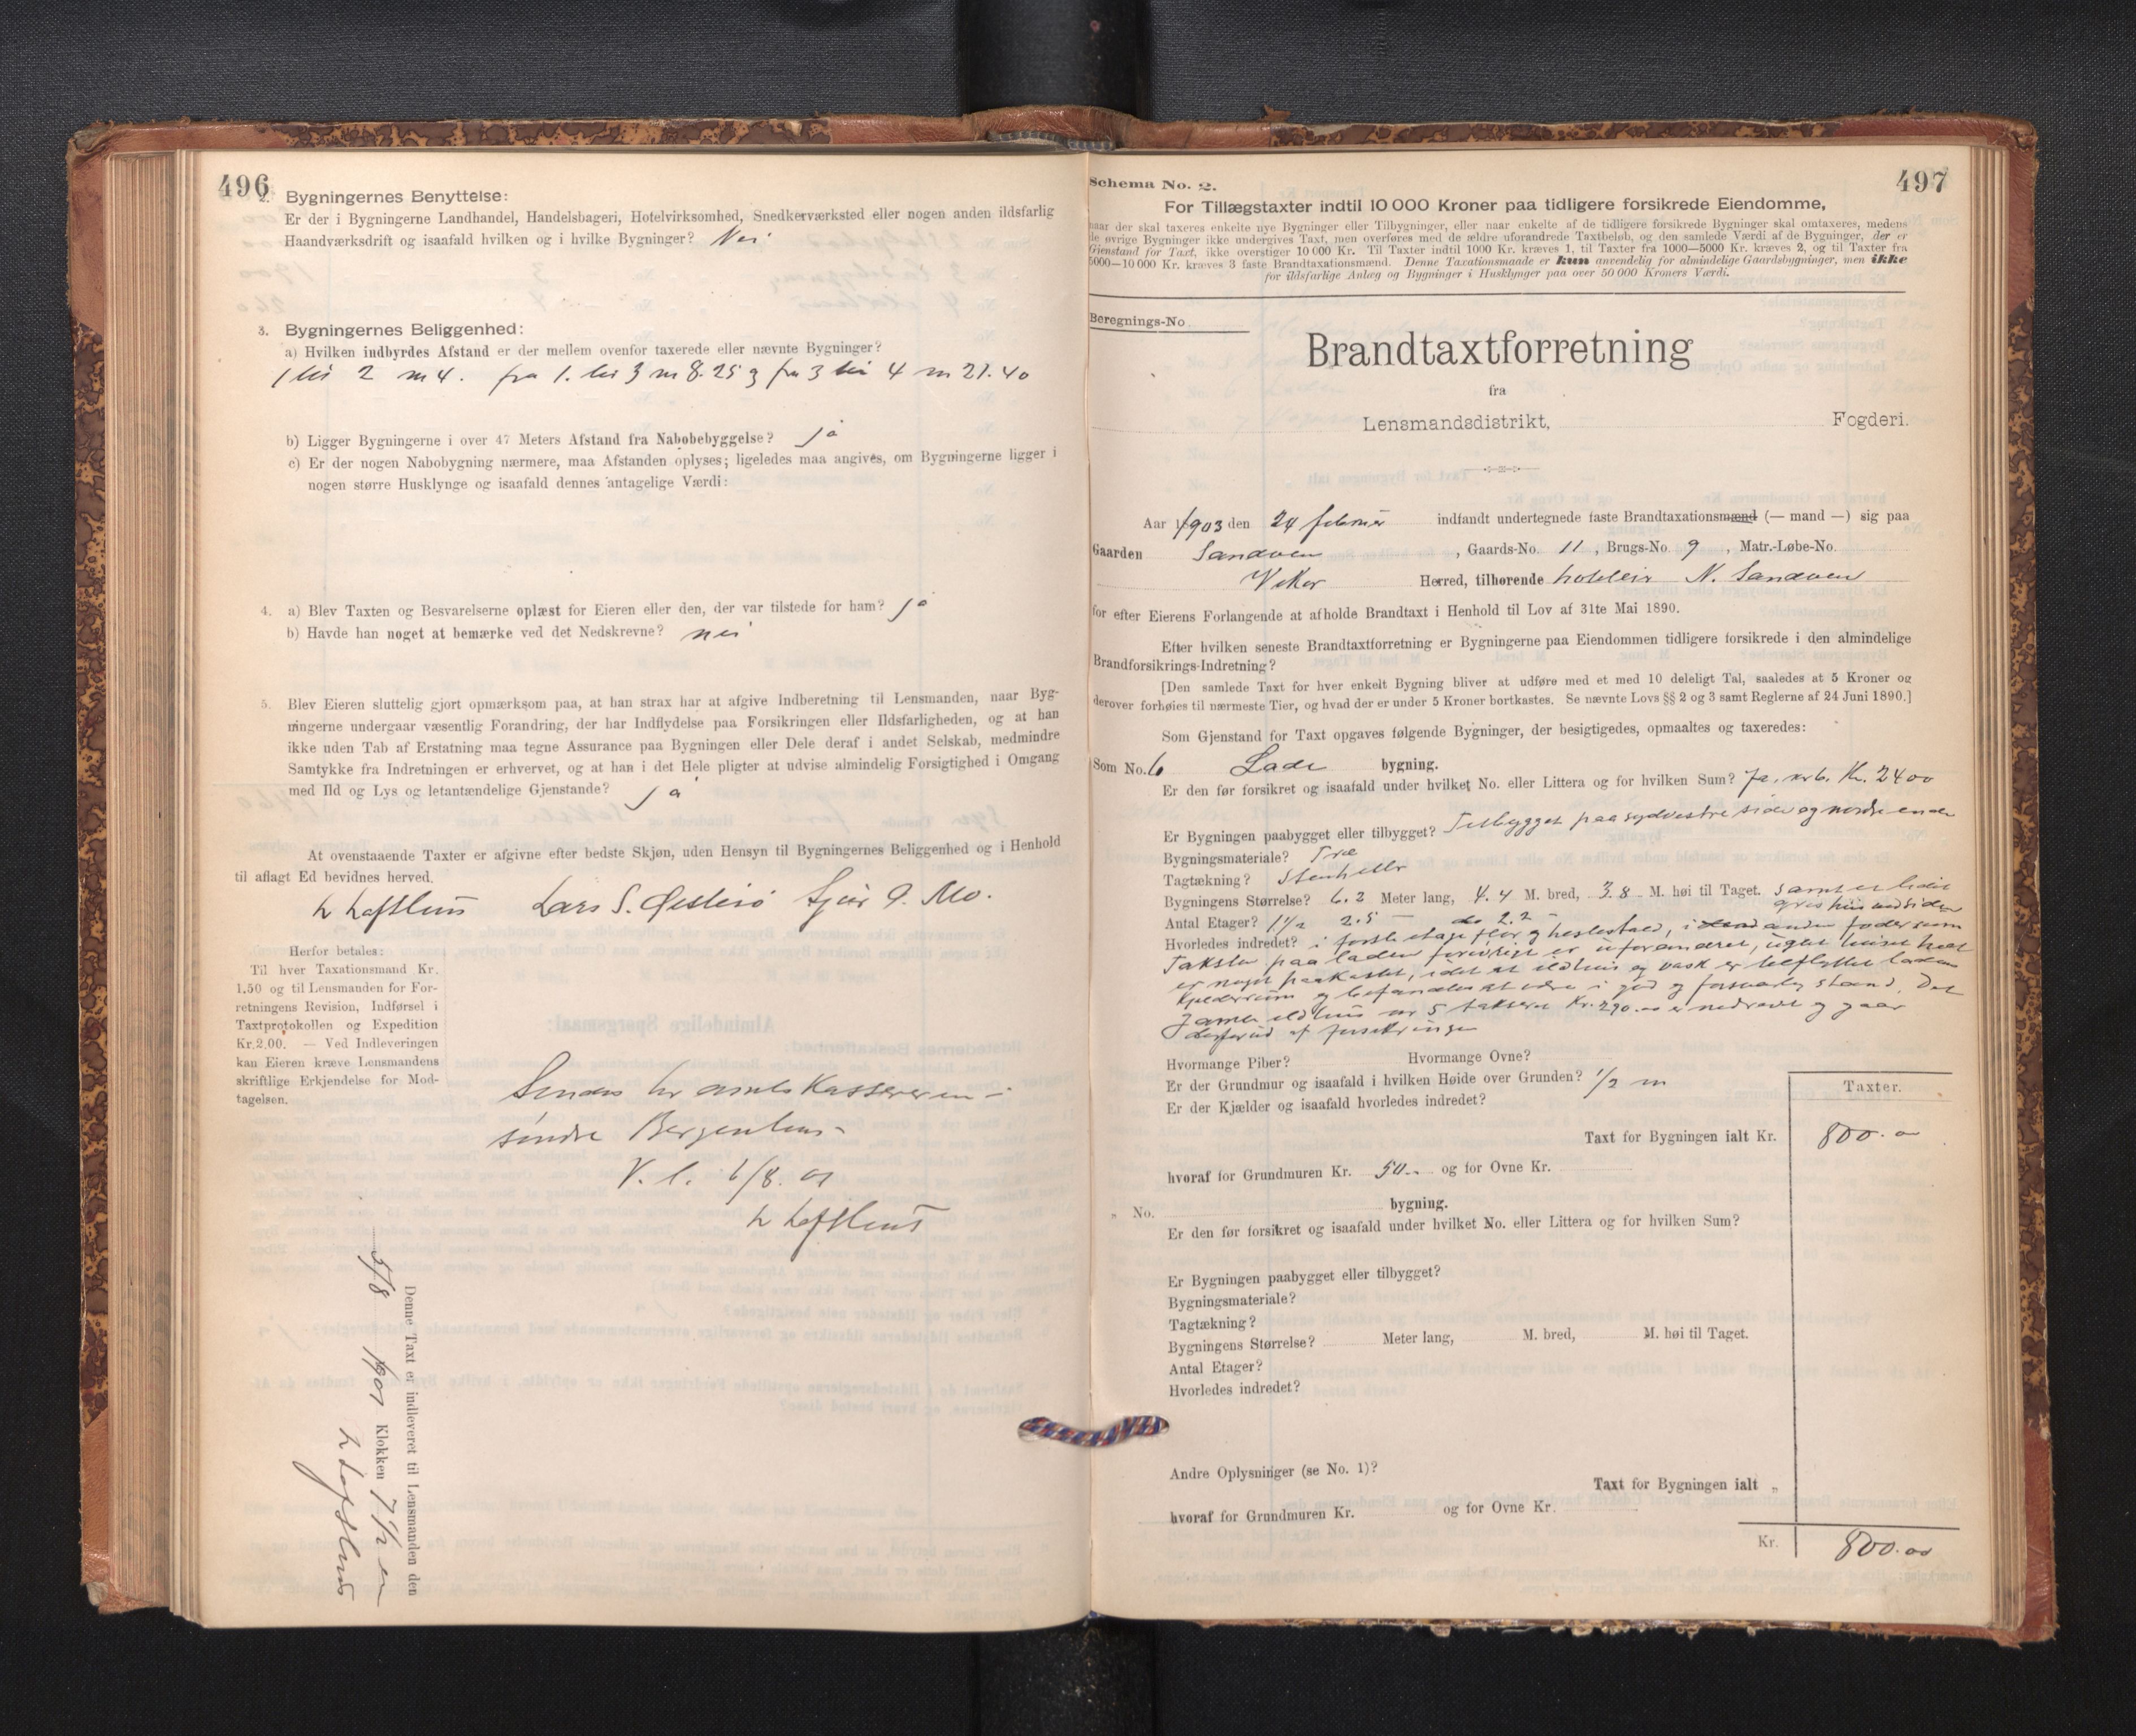 496
2. Bygningernes Benyttelse:
Er der i Bygningerne Landhandel, Handelsbageri, Hotelvirksomhed, Snedkerværksted eller nogen anden ildsfarlig
Haandværksdrift og isaafald hvilken og i hvilke Bygninger? Nei
3. Bygningernes Beliggenhed:
a) Hvilken indbyrdes Afstand er der mellem ovenfor taxerede eller nævnte Bygninger?
1 til 2 m 4. fra 1. til 3 m 8.25 og fra 3 til 4 m 21.40
b) Ligger Bygningerne i over 47 Meters Afstand fra Nabobebyggelse? ja
c) Er der nogen Nabobygning nærmere, maa Afstanden oplyses; ligeledes maa angives, om Bygningerne ligger i
nogen større Husklynge og isaafald dennes antagelige Værdi:
4. a) Blev Taxten og Besvarelserne oplæst for Eieren eller den, der var tilstede for ham? ja
b) Havde han noget at bemærke ved det Nedskrevne? nei
5. Blev Eieren sluttelig gjort opmærksom paa, at han strax har at afgive Indberetning til Lensmanden, naar Byg-
ningerne undergaar væsentlig Forandring, der har Indflydelse paa Forsikringen eller Ildsfarligheden, og at han
ikke uden Tab af Erstatning maa tegne Assurance paa Bygningen eller Dele deraf i andet Selskab, medmindre
Samtykke fra Indretningen er erhvervet, og at han i det Hele pligter at udvise almindelig Forsigtighed i Omgang
med Ild og Lys og letantændelige Gjenstande? ja
At ovenstaaende Taxter er afgivne efter bedste Skjøn, uden Hensyn til Bygningernes Beliggenhed og i Henhold
til aflagt Ed bevidnes herved.
L Lofthus Lars S. Øistesö Sjur O. Mo.
Herfor betales:
Til hver Taxationsmand Kr.
1.50 og til Lensmanden for For-
retningens Revision, Indførsel i
Taxtprotokollen og Expedition
Kr. 2.00. — Ved Indleveringen
kan Eieren kræve Lensmandens
skriftlige Erkjendelse for Mod-
tagelsen.
Sendes hr amtskassereren i
søndre Bergenhus
V. l. 6/8. 01
L Lofthus
Denne Taxt er indleveret til Lensmanden den
5/8 1901 Klokken 7 1/2 em
L Lofthus
497
Schema No. 2.
For Tillægstaxter indtil 10 000 Kroner paa tidligere forsikrede Eiendomme,
naar der skal taxeres enkelte nye Bygninger eller Tilbygninger, eller naar enkelte af de tidligere forsikrede Bygninger skal omtaxeres, medens
de øvrige Bygninger ikke undergives Taxt, men overføres med de ældre uforandrede Taxtbeløb, og den samlede Værdi af de Bygninger, der er
Gjenstand for Taxt, ikke overstiger 10 000 Kr. Til Taxter indtil 1000 Kr. kræves 1, til Taxter fra 1000—5000 Kr. kræves 2, og til Taxter fra
5000—10 000 Kr. kræves 3 faste Brandtaxationsmænd. Denne Taxationsmaade er kun anvendelig for almindelige Gaardsbygninger, men ikke
for ildsfarlige Anlæg og Bygninger i Husklynger paa over 50 000 Kroners Værdi.
Beregnings-No
Brandtaxtforretning
fra
Lensmandsdistrikt, Fogderi.
Aar 1903 den 24 februar indfandt undertegnede faste Brandtaxationsmænd (— mand —) sig paa
Gaarden Sandven, Gaards-No. 11, Brugs-No. 9, Matr.-Løbe-No.
Vikør Herred, tilhørende hotleier N. Sandven
for efter Eierens Forlangende at afholde Brandtaxt i Henhold til Lov af 31te Mai 1890.
Efter hvilken seneste Brandtaxtforretning er Bygningerne paa Eiendommen tidligere forsikrede i den almindelige
Brandforsikrings-Indretning?
[Den samlede Taxt for hver enkelt Bygning bliver at udføre med et med 10 deleligt Tal, saaledes at 5 Kroner og
derover forhøies til nærmeste Tier, og hvad der er under 5 Kroner bortkastes. Se nævnte Lovs §§ 2 og 3 samt Reglerne af 24 Juni 1890.]
Som Gjenstand for Taxt opgaves følgende Bygninger, der besigtigedes, opmaaltes og taxeredes:
Som No. 6 Lade bygning.
Er den før forsikret og isaafald under hvilket No. eller Littera og for hvilken Sum? Ja. nr 6. Kr. 2400
Er Bygningen paabygget eller tilbygget? Tilbygget paa sydvestre side og nordre ende
Bygningsmateriale? Træ
Tagtækning? Stenheller
Bygningens Størrelse? 6.2 Meter lang, 4.4 M. bred, 3.8 M. høi til Taget. samt et lidet
Antal Etager? 1 1/2 2.5 — do 2.2 —
Hvorledes indredet? i første etage flor og hestestald, i anden foderrum
Taksten paa laden forøvrigt er uforandret,
Kjelderrum og befandtes at være i god og forsvarlig stand. Det
gamle ildhus nr 5 takseret Kr. 290.00 er nedrevet og gaar
af forsikringen
Hvormange Piber? Hvormange Ovne?
Er der Grundmur og isaafald i hvilken Høide over Grunden? 1/2 m
Er der Kjælder og isaafald hvorledes indredet?
Taxter.
Taxt for Bygningen ialt Kr. 800.00
hvoraf for Grundmuren Kr. 50.- og for Ovne Kr.
„ No. bygning.
Er den før forsikret og isaafald under hvilket No. eller Littera og for hvilken Sum?
Er Bygningen paabygget eller tilbygget?
Bygningsmateriale?
Tagtækning?
Bygningens Størrelse? Meter lang, M. bred, M. høi til Taget.
Antal Etager?
Hvorledes indredet?
Andre Oplysninger (se No. 1)?
Taxt for Bygningen ialt „
hvoraf for Grundmuren Kr. og for Ovne Kr.
Kr. 800.00